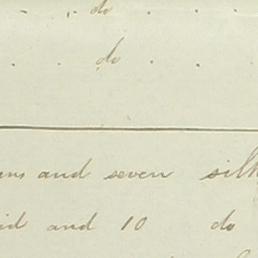 do
do
and seven silk
and 10 do